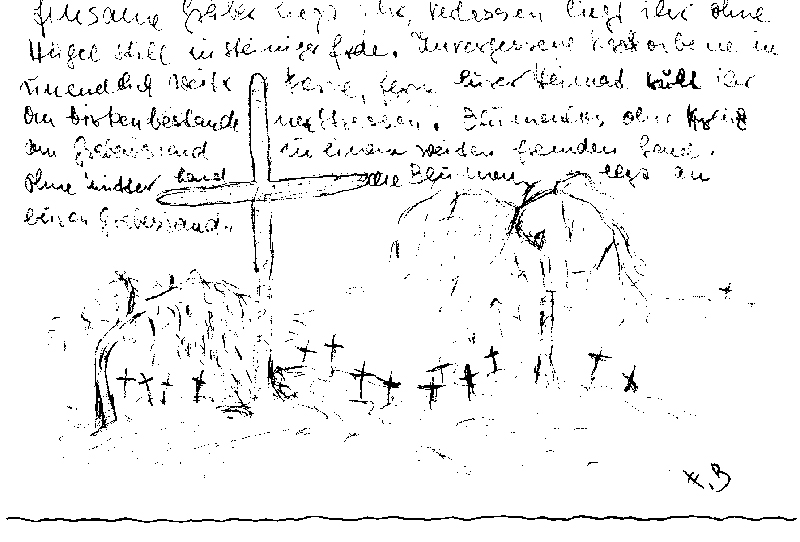 Einsame Gräber liegt ihr, verlassen liegt ihr ohne
Hügel still in steiniger Erde. Unvergessene Verstorbene in
unendlich weite Ferne, fern Eurer Heimat ruht ihr
am Birkenbestande vergessen. Blumenlos ohne Kreuz
am Grabesrand in einem weiten fremden Land.
ohne Mutterhand die Blumen legt an
euren Grabesrand.